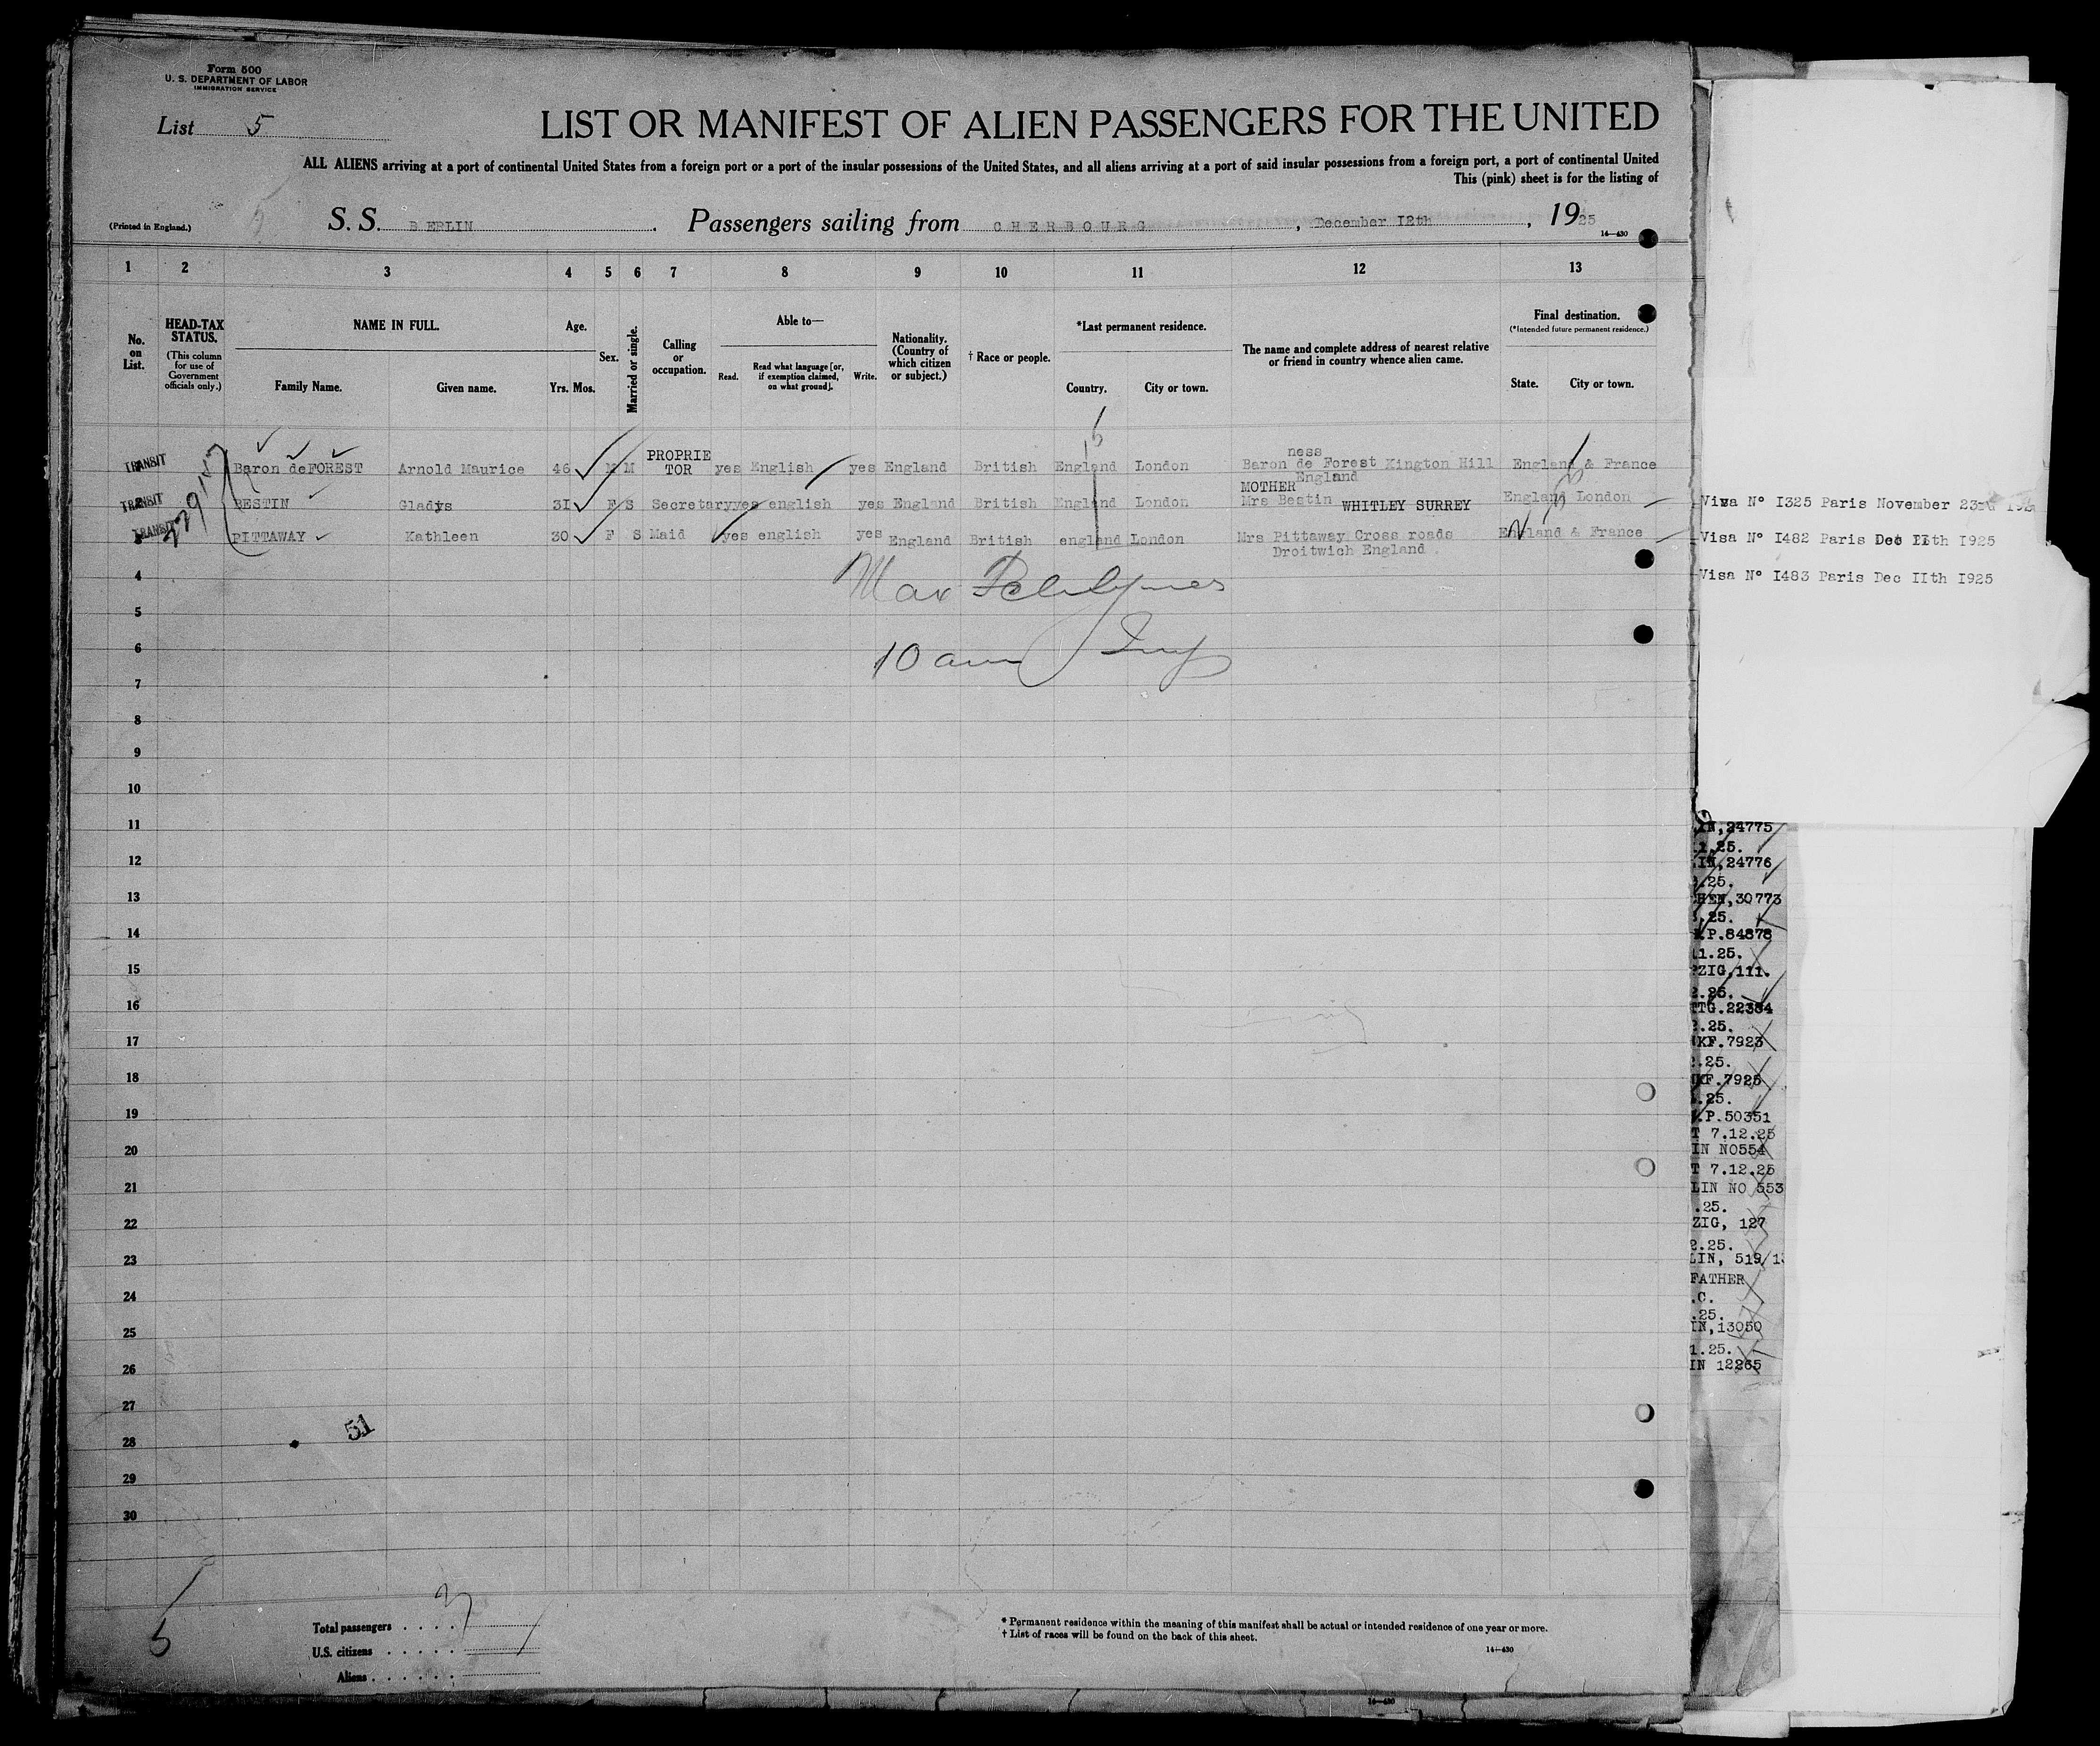 Form 500
U. S. DEPARTMENT OF LABOR
IMMIGRATION SERVICE
List 5
LIST OR MANIFEST OF ALIEN PASSENGERS FOR THE UNITED
ALL ALIENS arriving at a port of continental United States from a foreign port or a port of the insular possessions of the United States, and all aliens arriving at a port of said insular possessions from a foreign port, a port of continental United
This (pink) sheet is for the listing of
(Printed in England.) 5 S. S. BERLIN . Passengers sailing from CHERBOURG , December 12th , 1925
14—430
1 2 3 4 5 6 7 8 9 10 11 12 13
No. on List.
HEAD-TAX STATUS.
(This column for use of Government officials only.)
NAME IN FULL.
Family Name. Given name.
Age.
Yrs. Mos.
Sex.
Married or single.
Calling or occupation.
Able to—
Read. Read what language [or, if exemption claimed, on what ground]. Write.
Nationality. (Country of which citizen or subject.)
† Race or people.
*Last permanent residence.
Country. City or town.
The name and complete address of nearest relative or friend in country whence alien came.
Final destination.
(*Intended future permanent residence.)
State. City or town.
TRANSIT Baron deFOREST Arnold Maurice 46 M M PROPRIE TOR yes English yes England British England London Baron de Forest Kington Hill England & France
ness
England
TRANSIT BESTIN Gladys 3I F S Secretary yes english yes England British England London MOTHER Mrs Bestin WHITLEY SURREY England London
TRANSIT PITTAWAY Kathleen 30 F S Maid yes english yes England British england London Mrs Pittaway Cross roads England & France
Droitwich England
Visa N° I325 Paris November 23
Visa N° I482 Paris Dec IIth I925
Visa N° I483 Paris Dec IIth I925
4
Max
5
6
10 am
7
8
9
10
11
12
13
14
15
16
17
18
19
20
21
22
23
24
25
26
27
28
29
30
51
IN,24775
11.25.
IN,24776
.25.
HEN,30773
.25.
.P.84878
11.25.
ZIG,111.
2.25.
TTG.22384
2.25.
KF.7923
.25.
KF.7925
.25.
.P.50351
T 7.12.25
IN NO554
T 7.12.25
LIN NO 553
.25.
ZIG, 127
2.25.
LIN, 519/1
FATHER
.C.
.25.
IN,13050
1.25.
IN 12265
5
Total passengers . . . .
U.S. citizens . . . . .
Aliens . . . . . .
* Permanent residence within the meaning of this manifest shall be actual or intended residence of one year or more.
† List of races will be found on the back of this sheet.
14—430
14—430